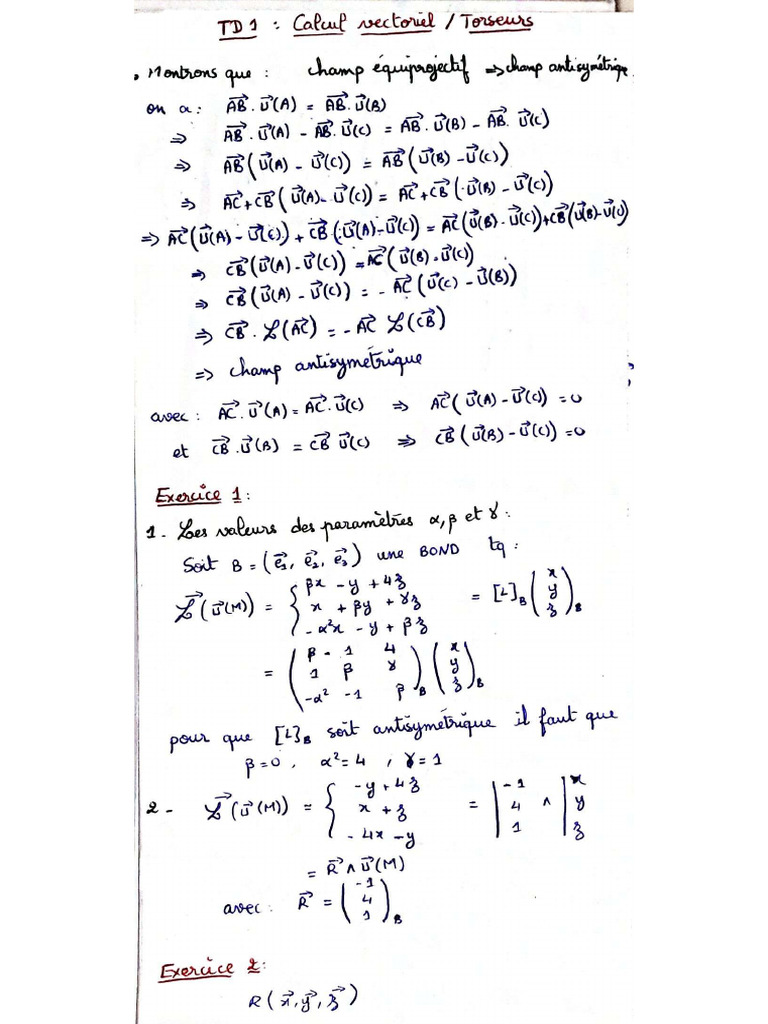 TD1 : Calcul vectoriel / Torseurs
. Montrons que : champ équiprojectif ⇒ champ antisymétrique
on a : AB⃗.U⃗(A) = AB⃗.U⃗(B)
⇒ AB⃗.U⃗(A) - AB⃗.U⃗(C) = AB⃗.U⃗(B) - AB⃗.U⃗(C)
⇒ AB⃗(U⃗(A) - U⃗(C)) = AB⃗(U⃗(B) - U⃗(C))
⇒ AC⃗+CB⃗(U⃗(A) - U⃗(C)) = AC⃗+CB⃗(U⃗(B) - U⃗(C))
⇒ AC⃗(U⃗(A) - U⃗(C)) + CB⃗(U⃗(A)-U⃗(C)) = AC⃗(U⃗(B) - U⃗(C))+CB⃗(U⃗(B)-U⃗(C))
⇒ CB⃗(U⃗(A)-U⃗(C)) = AC⃗(U⃗(B)-U⃗(C))
⇒ CB⃗(U⃗(A) - U⃗(C)) = - AC⃗(U⃗(C) - U⃗(B))
⇒ CB⃗.ℒ(AC⃗) = - AC⃗ ℒ(CB⃗)
⇒ champ antisymétrique
avec : AC⃗.U⃗(A) = AC⃗.U⃗(C) ⇒ AC⃗(U⃗(A) - U⃗(C)) = 0
et CB⃗.U⃗(B) = CB⃗ U⃗(C) ⇒ CB⃗(U⃗(B) - U⃗(C)) = 0
Exercice 1 :
1 - Les valeurs des paramètres α, β et γ :
Soit B = (e⃗1, e⃗2, e⃗3) une BOND tq :
ℒ⃗(U⃗(M)) = { βx - y + 4z
x + βy + γz
-α²x - y + βz = [L]B (x y z)B
= (β -1 4
1 β γ
-α² -1 β)B (x y z)B
pour que [L]B soit antisymétrique il faut que
β=0, α²=4, γ=1
2 - ℒ⃗(U⃗(M)) = { -y + 4z
x + z
-4x - y = |-1 4 1 ∧ |x y z
= R⃗ ∧ U⃗(M)
avec : R⃗ = (-1 4 1)B
Exercice 2 :
R(x⃗, y⃗, z⃗)